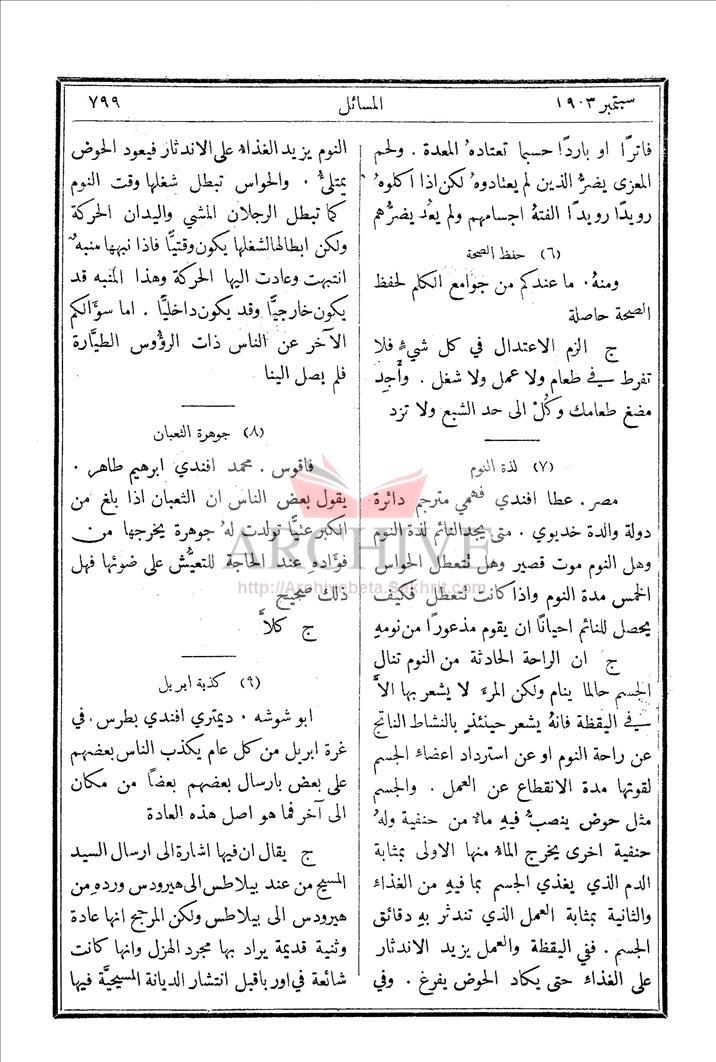 سبتمبر ١٩٠٣
المسائل
٧٩٩
فاترًا او باردًا حسبما تعتادهُ المعدة . ولحم
المعزى يضرُّ الذين لم يعتادوهُ لكن اذا اكلوهُ
رويدًا رويدًا الفتهُ اجسامهم ولم يعُد يضرُّهم
(٦) حفظ الصحة
ومنهُ . ما عندكم من جوامع الكلم لحفظ
الصحة حاصلة
ج الزم الاعتدال في كل شيءٍ فلا
تفرط في طعام ولا عمل ولا شغل . وأَجِد
مضغ طعامك وكُلْ الى حد الشبع ولا تزد
(٧) لذة النوم
مصر . عطا افندي فهمي مترجم دائرة
دولة والدة خديوي . متى يجد النائم لذة النوم
وهل النوم موت قصير وهل تُتعطل الحواس
الخمس مدة النوم واذا كانت تُتعطل فكيف
يحصل للنائم احيانًا ان يقوم مذعورًا من نومهِ
ج ان الراحة الحادثة من النوم تنال
الجسم حالما ينام ولكن المرءَ لا يشعر بها الاَّ
في اليقظة فانهُ يشعر حينئذٍ بالنشاط الناتج
عن راحة النوم او عن استرداد اعضاء الجسم
لقوتها مدة الانقطاع عن العمل . والجسم
مثل حوض ينصبُّ فيهِ ماءٌ من حنفية ولهُ
حنفية اخرى يخرج الماءُ منها الاولى بمثابة
الدم الذي يغذي الجسم بما فيهِ من الغذاء
والثانية بمثابة العمل الذي تندثر بهِ دقائق
الجسم . ففي اليقظة والعمل يزيد الاندثار
على الغذاء حتى يكاد الحوض يفرغ . وفي
النوم يزيد الغذاءُ على الاندثار فيعود الحوض
يمتلئُ . والحواس تبطل شغلها وقت النوم
كما تبطل الرجلان المشي واليدان الحركة
ولكن ابطالها لشغلها يكون وقتيًّا فاذا نبهها منبهٌ
انتبهت وعادت اليها الحركة وهذا المنبه قد
يكون خارجيًّا وقد يكون داخليًّا . اما سؤالكم
الآخر عن الناس ذات الرؤُوس الطيَّارة
فلم يصل الينا
(٨) جوهرة الثعبان
فاقوس . محمد افندي ابرهيم طاهر .
يقول بعض الناس ان الثعبان اذا بلغ من
الكبر عتيًّا تولدت لهُ جوهرة يخرجها من
فؤادهِ عند الحاجة للتعيُّش على ضوئها فهل
ذلك صحيح
ج كلاَّ
(٩) كذبة ابريل
ابو شوشه . ديمتري افندي بطرس . في
غرة ابريل من كل عام يكذب الناس بعضهم
على بعض بارسال بعضهم بعضًا من مكان
الى آخر فما هو اصل هذه العادة
ج يقال ان فيها اشارة الى ارسال السيد
المسيح من عند بيلاطس الى هيرودس وردهِ من
هيرودس الى بيلاطس ولكن المرجح انها عادة
وثنية قديمة يراد بها مجرد الهزل وانها كانت
شائعة في اوربا قبل انتشار الديانة المسيحيَّة فيها
ARCHIVE
http://Archivebeta.Sakhrit.com